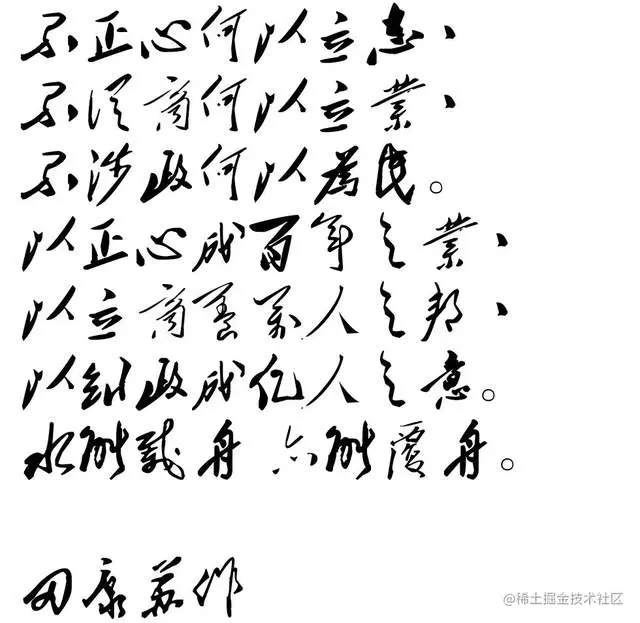 不正心何以立志、
不从商何以立業、
不涉政何以為民。
以正心成百年之業、
以立商養萬人之邦、
以制政成亿人之意。
水能载舟 亦能覆舟。
田康苏作
@稀土掘金技术社区